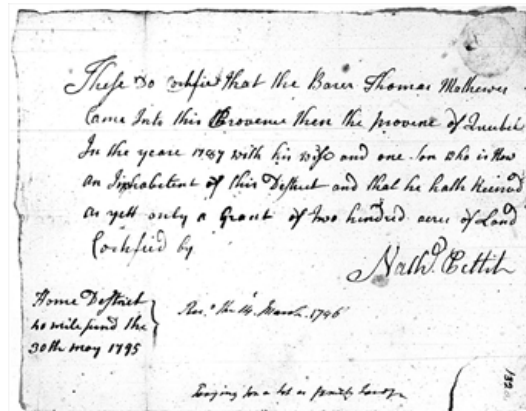 These Do certifie that the Barer Thomas Mathewes
Came Into this Provence then the provenc of Quebec
In the yeare 1787 with his wife and one Son who is Now
an Inhabetent of this Destrect and that he hath Receved
as yett only a Grant of Two hundred acres of Land
Certified by
Nathl. Pettit
Home Destrect
40 mile pund the
30th may 1795
Rec.d the 14 March 1796
a lot as
132